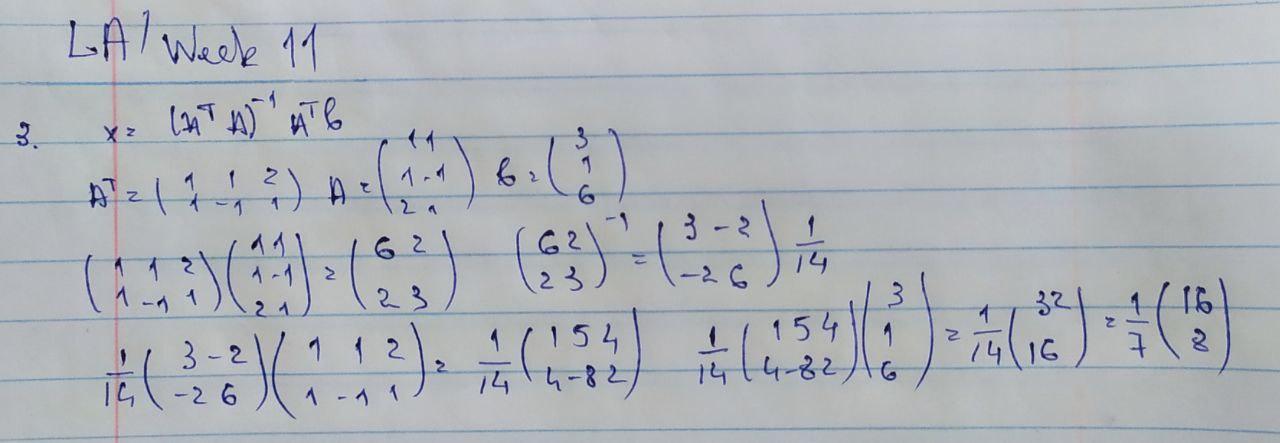 LA / Week 11
3. x = (A^T A)^-1 A^T b
A^T = (1 1 2; 1 -1 1) A = (1 1; 1 -1; 2 1) b = (3; 1; 6)
(1 1 2; 1 -1 1)(1 1; 1 -1; 2 1) = (6 2; 2 3) (6 2; 2 3)^-1 = (3 -2; -2 6) 1/14
1/14 (3 -2; -2 6)(1 1 2; 1 -1 1) = 1/14 (1 5 4; 4 -8 2) 1/14 (1 5 4; 4 -8 2)(3; 1; 6) = 1/14 (32; 16) = 1/7 (16; 8)